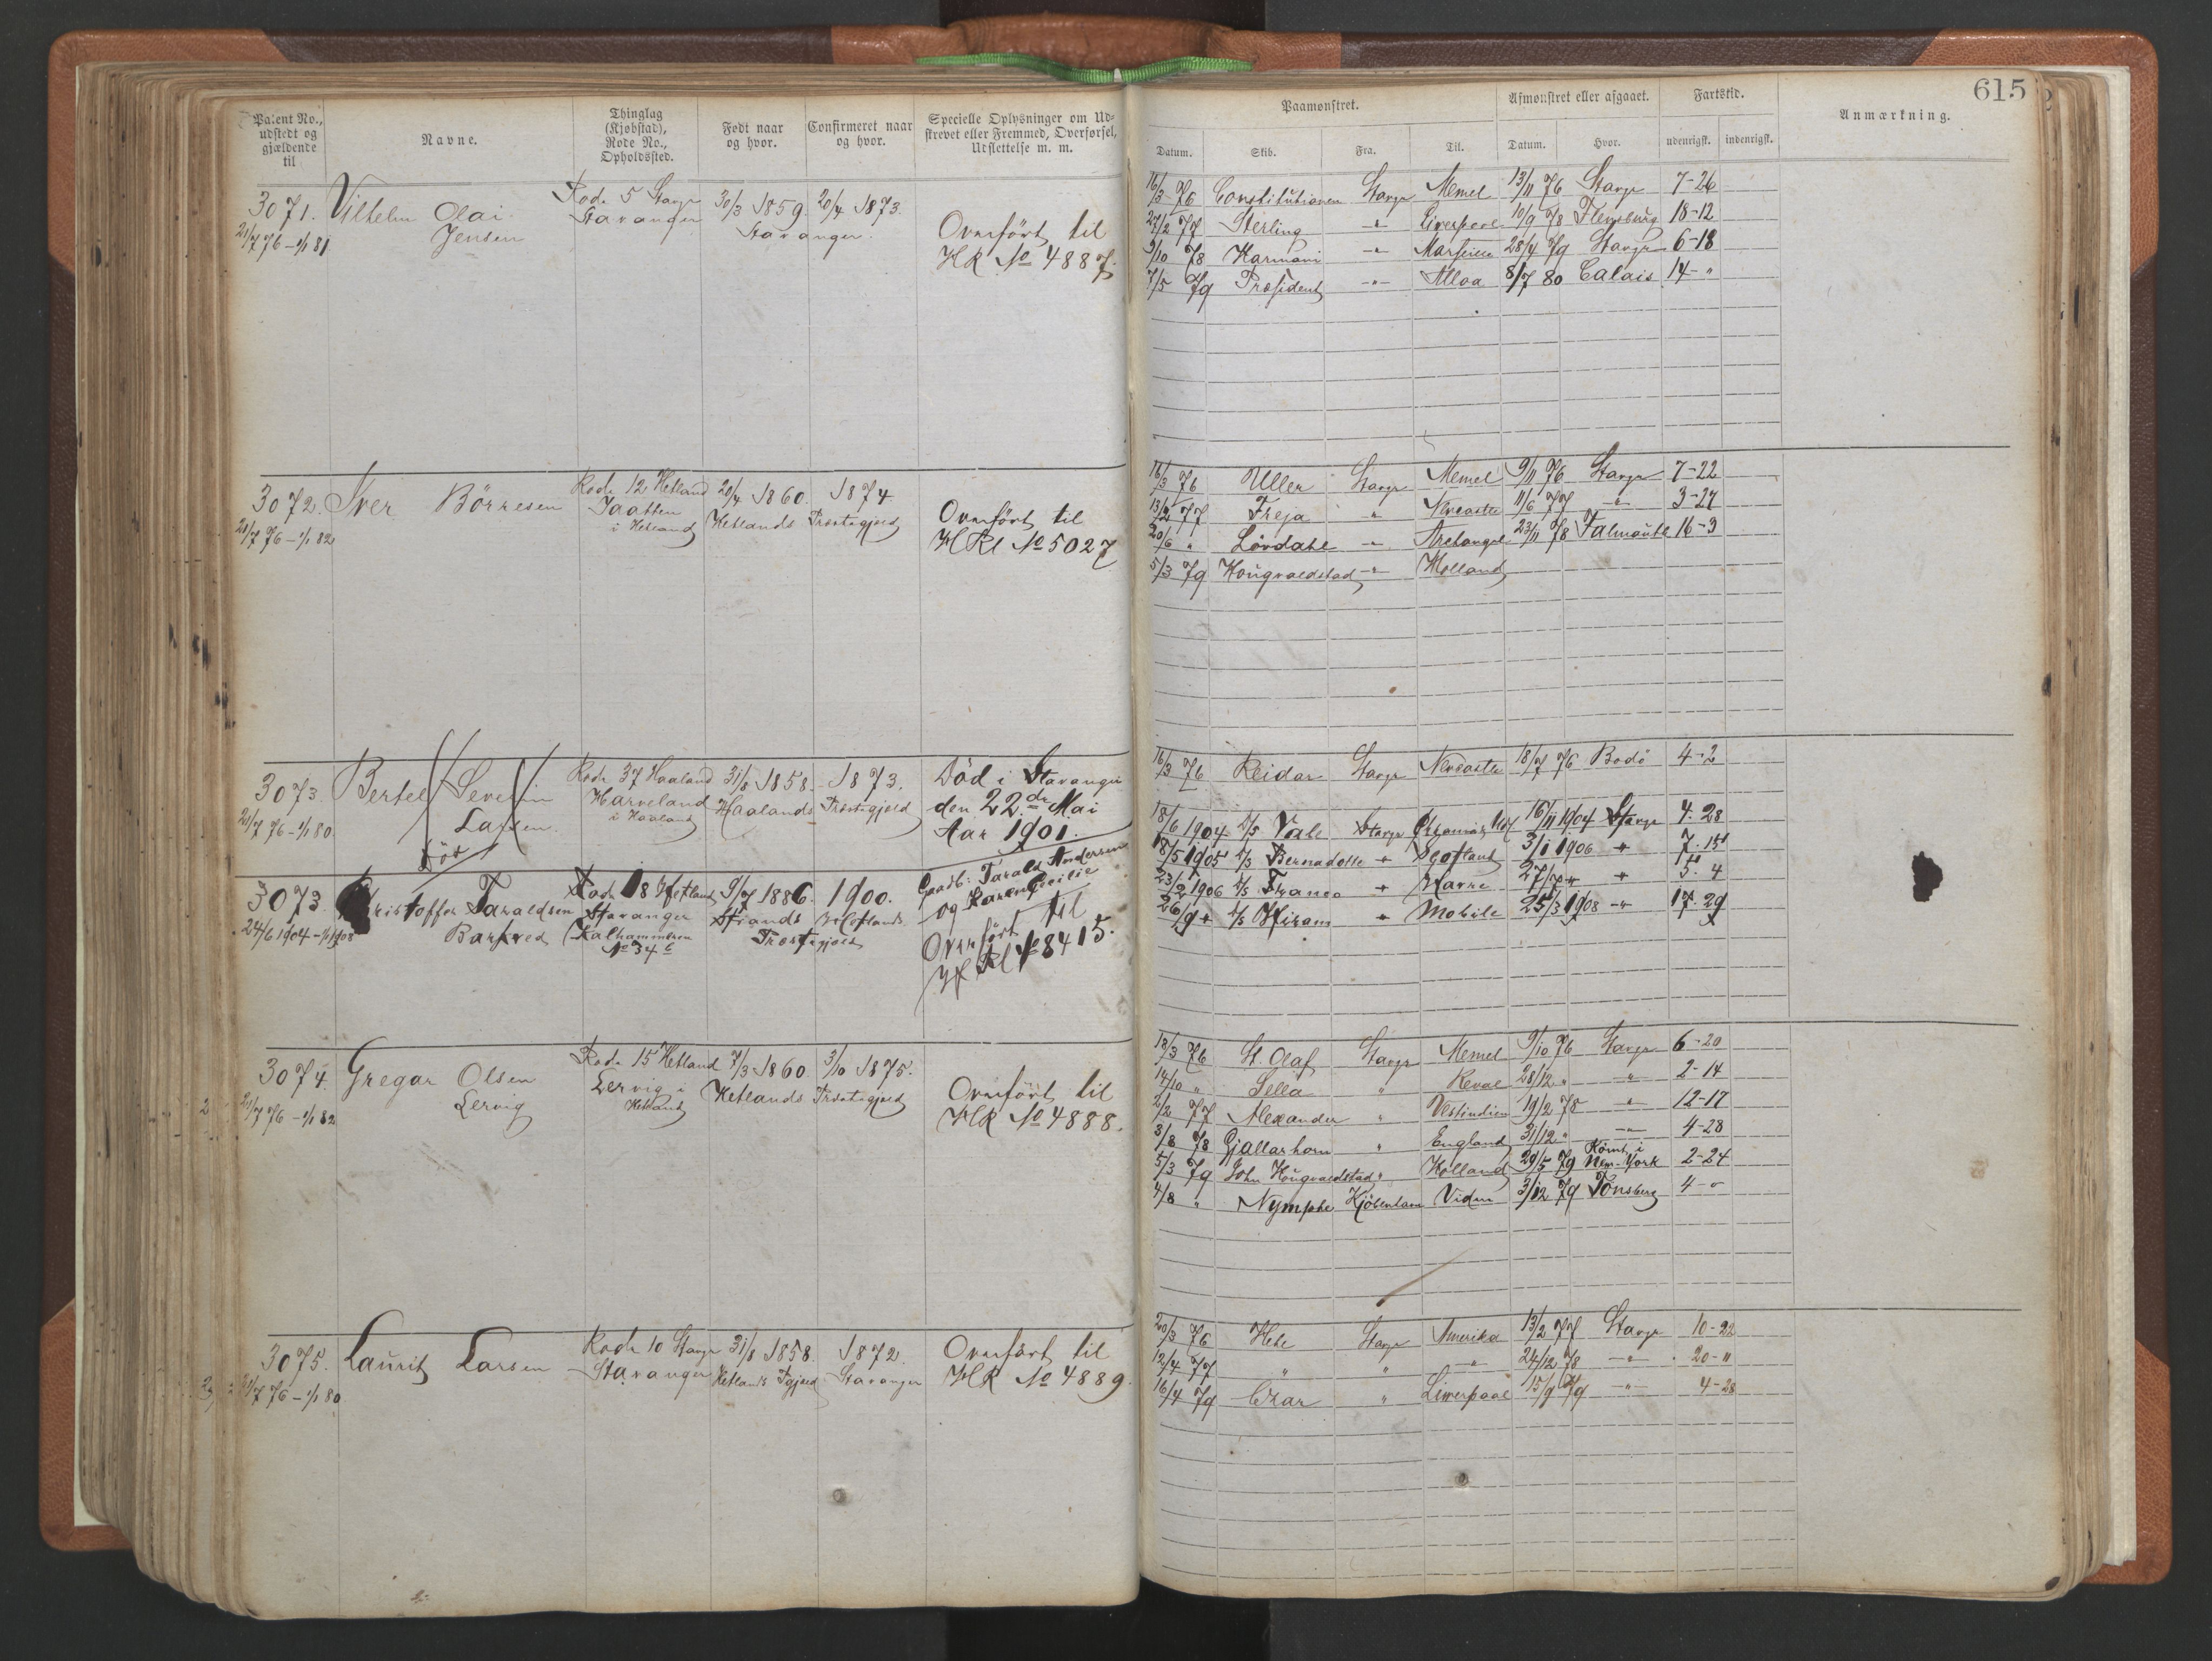 615
Patent No., udstedt og gjældende til
Navne.
Thinglag (Kjøbstad), Rode No., Opholdssted.
Født naar og hvor.
Confirmeret naar og hvor.
Specielle Oplysninger om Udskrevet eller Fremmed, Overførsel, Udslettelse m. m.
Paamønstret.
Afmønstret eller afgaaet.
Fartstid.
Anmærkning.
Datum. Skib. Fra. Til. Datum. Hvor. udenrigsk. indenrigsk.
3071. Vilhelm Olai Jensen
21/7 76 – 1/1 81
Rode 5 Stavgr Stavanger
30/3 1859. 20/4 1873.
Stavanger.
Overført til
HR No 4887.
16/3 76 Constitutionen Stavgr Memel 13/11 76 Stavgr 7-26
27/2 77 Sterling -"- Liverpool 10/9 78 Flensburg 18-12
9/10 78 Karmani -"- Marseille 28/4 79 Stavgr 6-18
7/5 79 Præsident -"- Alloa 8/7 80 Calais 14-"
3072. Iver Börresen
21/7 76 – 1/1 82
Rode 12 Hetland Jaatten i Hetland
20/4 1860. 1874
Hetlands Præstegjeld
Overført til
HRl No 5027
16/3 76 Uller Stavgr Memel 9/11 76 Stavgr 7-22
13/2 77 Freja " Newcastle 11/6 77 -"- 3-27
20/6 " Lövdahl -"- Archangel 23/11 78 Falmouth 16-3
5/3 79 Kongvaldstad -"- Holland
3073. Bertel Severin Larsen.
21/7 76 – 1/1 80.
död
Rode 37 Haaland Harveland i Haaland
31/8 1858. 1873.
Haalands Præstegjeld
Död i Stavanger
den 22de Mai
Aar 1901.
16/3 76 Reidar Stavgr Newcastle 18/7 76 Bodö 4-2
3073. Kristoffer Taraldsen Barkved
24/6 1904 – 1/1 1908
Rode 18 Hetland Stavanger Kalhammeren No 34 c
9/7 1886. 1900.
Strands
Præstegjeld
Forældre: Tarald Andersen
og Karen Cecilie
Overført til
HRl No 8415.
18/6 1904 D/S Vale Stavgr 16/11 1904 Stavgr 4. 28
18/5 1905 D/S Bernadotte " Skotland 3/1 1906 " 7. 15
23/2 1906 D/S Franco " Havre 27/7 " " 5. 4
26/9 " D/S Hiram " Mobile 25/3 1908 -"- 17. 29
3074. Gregar Olsen Lervig
21/7 76 – 1/1 82
Rode 15 Hetland Lervig i Hetland
7/3 1860 3/10 1875.
Hetlands Præstegjeld
Overført til
HR No 4888.
18/3 76 St. Olaf Stavgr Memel 9/10 76 Stavgr 6-20
14/10 " Sella " Reval 28/12 " " 2-14
2/2 77 Alexander " Vestindien 19/2 78 -"- 12-17
3/8 78 Gjallarhorn " England 31/12 " -"- 4-28
5/3 79 John Kongvaldstad " Holland 29/5 79 Römt i New-York 2-24
4/8 " Nymphe Kjöbenhavn Viden 3/12 79 Tönsberg 4-0
3075. Laurits Larsen
21/7 76 – 1/1 80
Rode 10 Stavgr Stavanger
31/8 1858. 1872.
Hetlands Pgjeld Stavanger
Overført til
HR No 4889.
20/3 76 Hebe Stavgr Amerika 13/2 77 Stavgr 10-22
12/4 77 " " -"- 24/12 78 -"- 20-11
16/4 79 Czar " Liverpool 15/9 79 -"- 4-28